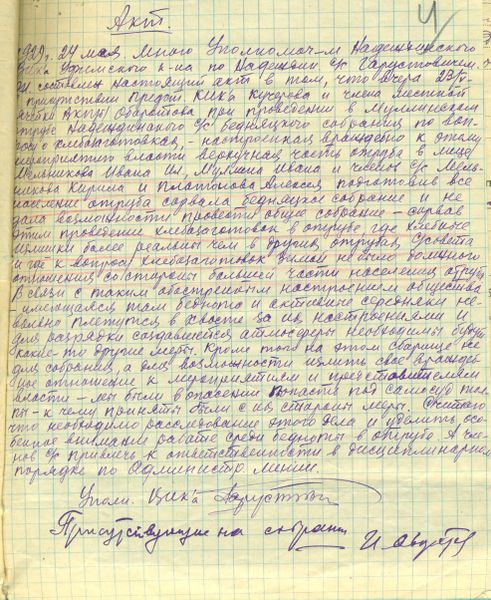 Акт.
4
1929 г. 24 мая, Мною Уполномоч-м Надеждинского
Вика Уфимского к-на по Надеждин С/С
составлен настоящий акт в том, что вчера 23/V-
присутствии Предст. ВИК'а Кучерова и члена местной
при проведении в
отрубе Надеждинского С/С бедняцкого собрания по воп-
росу о хлебозаготовках, – настроенная враждебно к этому
мероприятию власти верхушная часть отруба в лице
Мельникова Ивана Ил, Мухина Ивана и членов С/С Мель-
никова Кирила и Платонова Алексея подготовив все
население отруба сорвала бедняцкое собрание и не
дала возможности провести общее собрание – сорвав
этим проведение хлебозаготовок в отрубе, где хлебные
излишки более реальны чем в других отрубах С/совета
и где к вопросу хлебозаготовок зимой не было должного
отношения со стороны большей части населения отруба
В связи с таким обостренным настроением общества
– имеющаяся там беднота и активные середняки не-
вольно плетутся в хвосте за их настроениями и
для разрядки создавшейся атмосферы необходимы будут
какие-то другие меры. Кроме того на этом сборище не
для собрания, а для возможности излить свое враждеб-
ное отношение к мероприятиям и представителям
власти – мы были в опасении попасть под самосуд тол-
пы – к чему приняты были с их стороны меры. Считаю
что необходимо расследование этого дела и уделить осо-
бенное внимание работе среди бедноты в отрубе. А чле-
нов С/С привлечь к ответственности в дисциплинарном
порядке по Администр. линии.
Уполн. Вик'а
Присутствующие на собрании